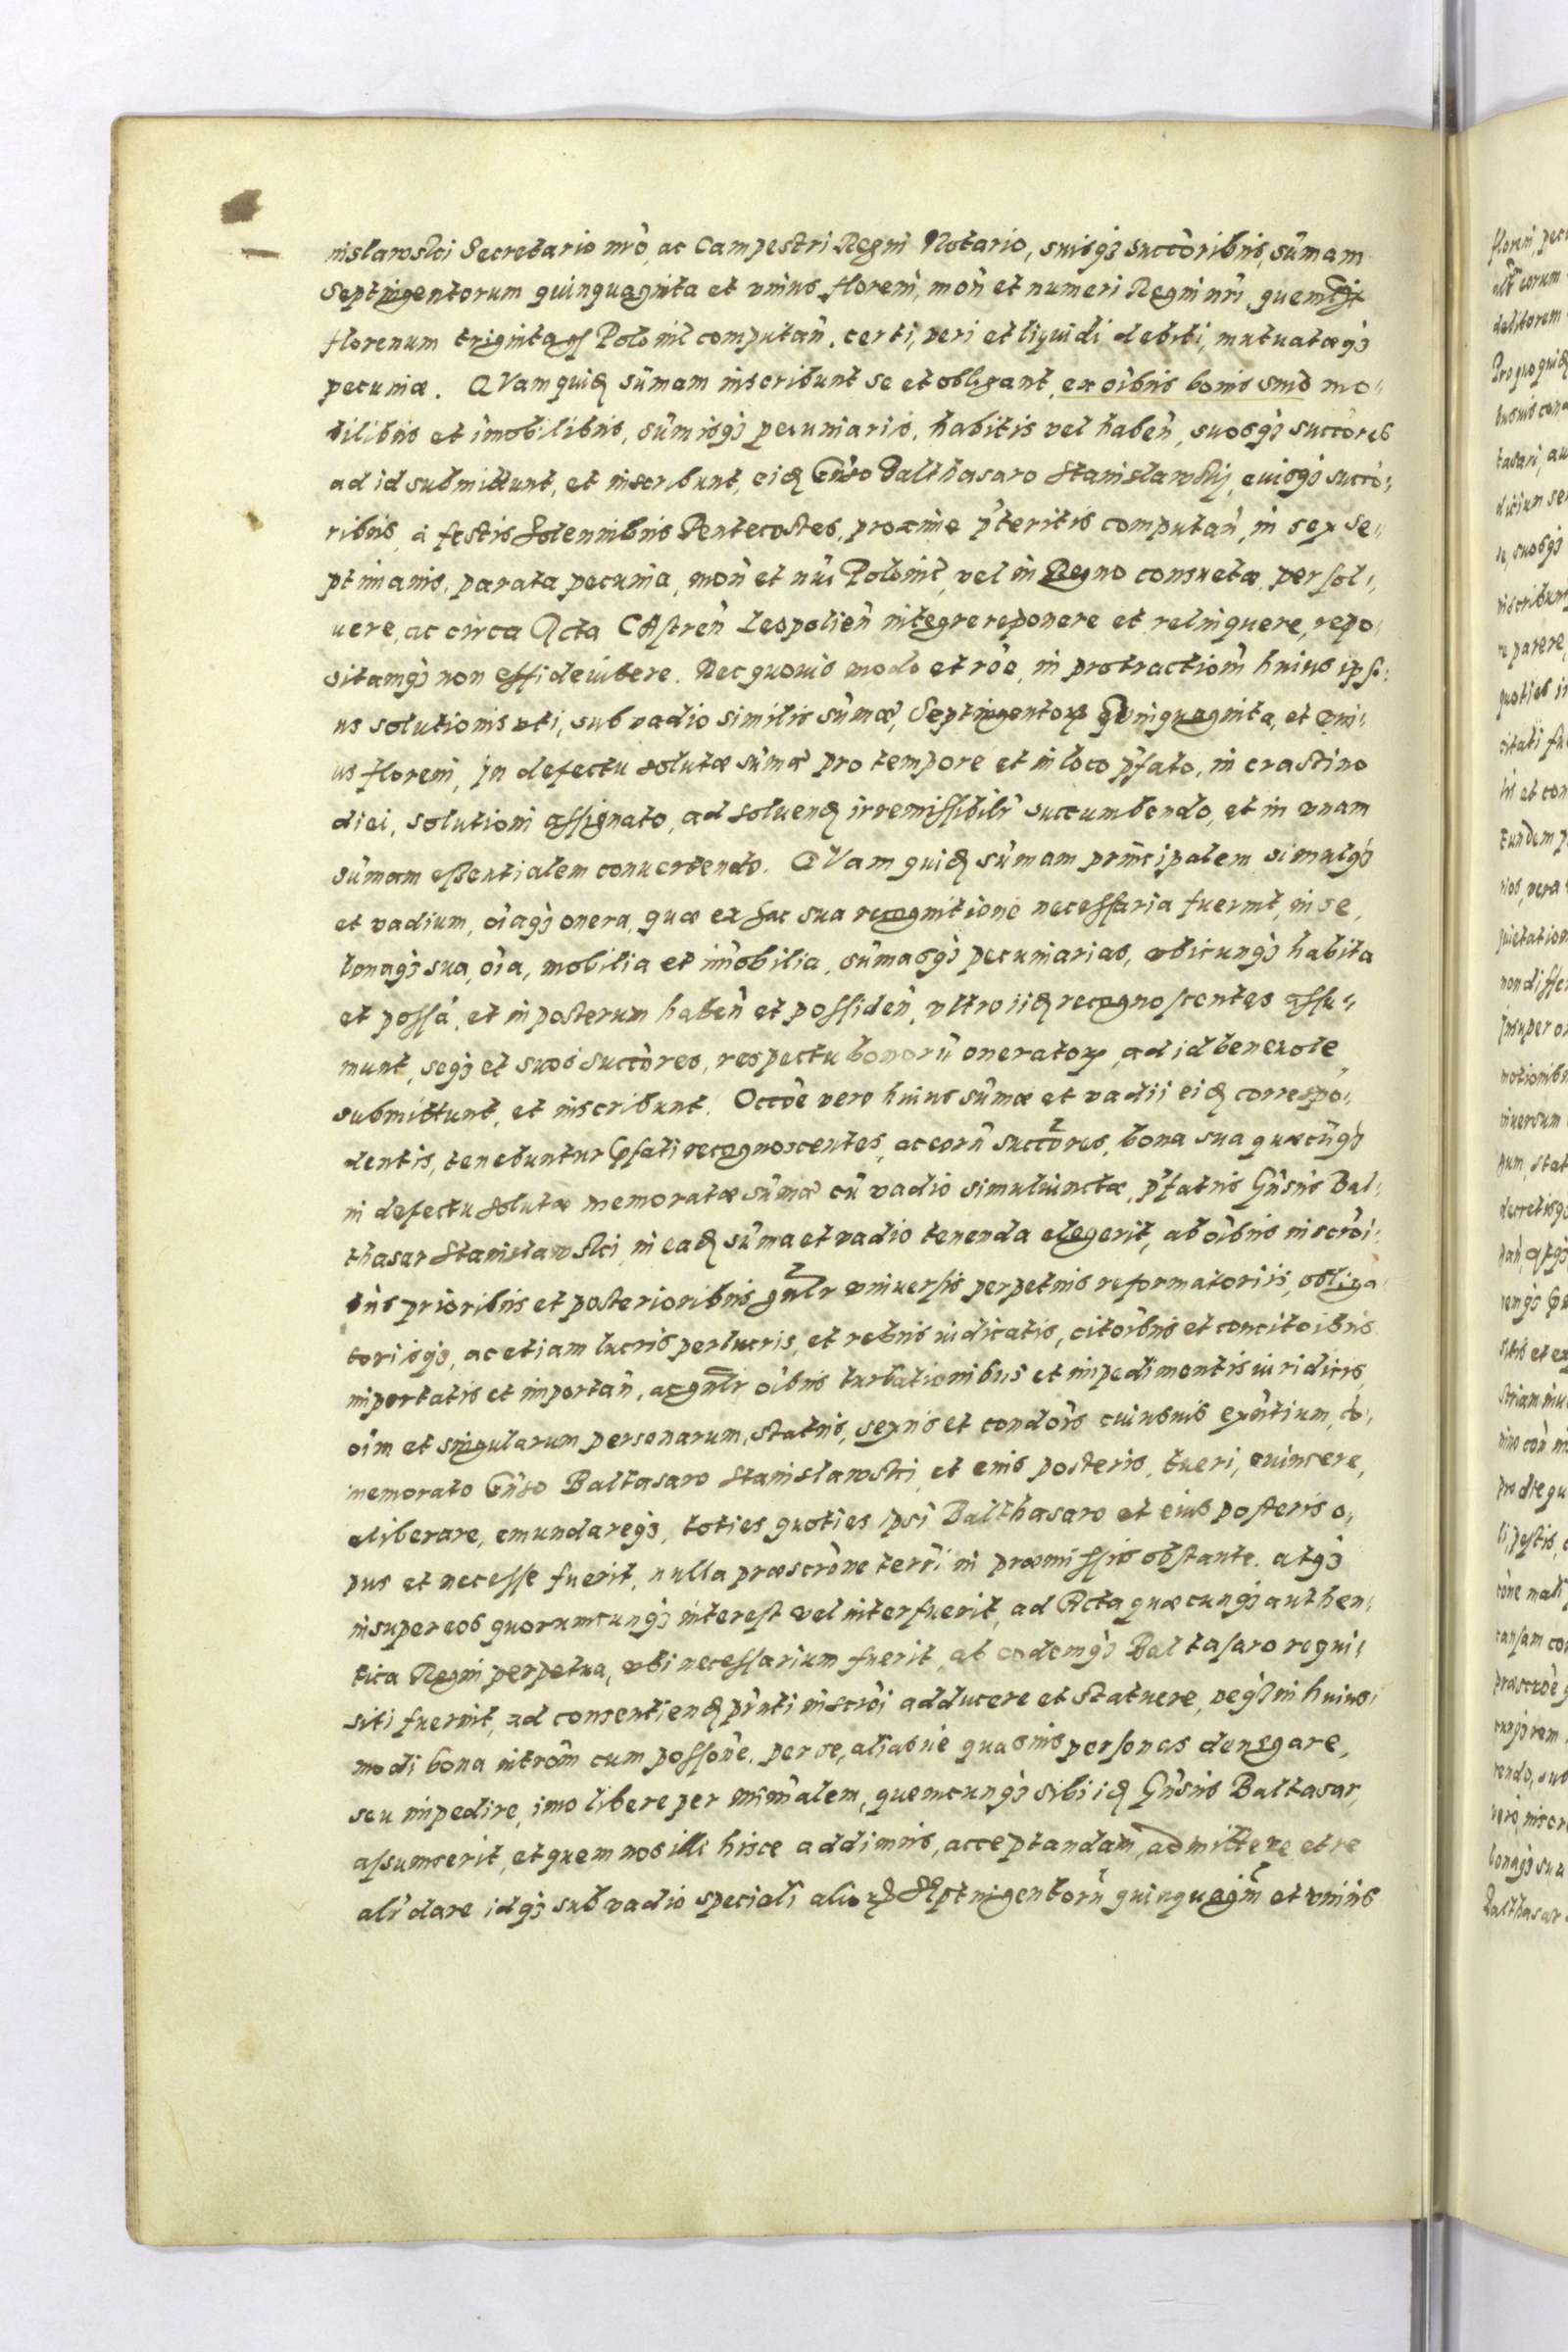 nislawski Secretario nrõ, ac Campestri Regni Notario, suisq₃ succõribus, sum̃am
Septingentorum quinquaginta et vnius floreni, moñ et numeri Regni nrĩ, quemlibt
florenum triginta gs̃ Polonil computañ. certi, veri et liquidi debiti, mutuatæq₃
pecuniæ. QVam quid̨ sum̃am inscribunt se et obligant, ex oĩbus bonis suis mo,,
bilibus et im̃obilibus, sum̃isq₃ pecuniariis, habitis vel habeñ, suosq₃ succõres
ad id submittunt, et inscribunt, eid̨ Gñso Balthasaro Stanislawskij, euisq₃ succõ,,
ribus, à festis Solennibus Pentecostes, proxime pʼteritis computañ, in sex se,,
ptimanis, parata pecunia, moñ et nũi Polonił, vel in Regno consuetæ, persol,,
uere, ac circa Acta CAstreñ Leopolieñ integre reponere et relinquere, repo,,
sitamq₃ non effidevibere. Nec quouis modo et rõe, in protractiom̃ huius ipsi,,
us solutionis vti, sub vadio similis sum̃æ, Septingentoꝝ quinquaginta, et vni,,
us floreni, Jn defectu solutæ sum̃æ pro tempore et in loco pʼfato, in crastino
diei, solutioni assignato, ad soluend̨ irremissibilr̃ succumbendo, et in vnam
sum̃am essentialem conuertendo. QVam quid̨ sum̃am principalem simulq₃
et vadium, oĩaq₃ onera, quæ ex hac sua recognitione necessaria fuerint, in se,
bonaq₃ sua, oĩa, mobilia et im̃obilia, sum̃asq₃ pecuniarias, vbicunq₃ habita
et possã, et in posterum habeñ et possideñ, vltro iid̨ recognoscentes assu,,
munt, seq₃ et suos succõres, respectu bonorũ oneratoꝝ, ad id beneuole
submittunt, et inscribunt. Occõe vero huius sum̃æ et vadii eid̨ correspõ,,
dentis, tenebuntur pʼfati recognoscentes, ac eorũ succõres, bona sua quæcũq₃
in defectu solutæ memoratæ sum̃æ cũ vadio simul iunctæ, pʼfatus Gñsus Bal,,
thasar Stanislawski, in ead̨ sum̃a et vadio tenenda elegerit, ab oĩbus inscrõi,,
bus prioribus et posterioribus gñlr vniuersis perpetuis reformatoriis, obliga,,
torisq₃, ac etiam lucris perlucris, et rebus iudicatis, citoĩbus et concitoibus
importatis et importañ, ac gñlr oĩbus turbationibus et impedimentis iuridicis,
oĩm et singularum personarum, status, sexus et condõis cuiusuis exñtium, cõ,,
memorato Gñso Baltasaro Stanislawski, et eius posteris, tueri, euincere,
eliberare, emundareq₃, toties quoties ipsi Balthasaro et eius posteris o,,
pus et necesse fuerit, nulla præscrõne terrĩ in præmissis obstante. atq₃
insuper eos quorumcunq₃ interest vel interfuerit, ad Acta quæcunq₃ authen,,
tica Regni perpetua, vbi necessarium fuerit, ab eodemq₃ Baltasaro requi,,
siti fuerint, ad consentiend̨ pñti inscrõi adducere et statuere, neq₃ in huius,,
modi bona introm̃ cum possoñe, per se, aliasue quasuis personas denegare,
seu impedire, imo libere per mim̃alem, quemcunq₃ sibi id̨ Gñsus Baltasar,
assumserit, et quem nos illi hisce addimus, acceptandam, admittere et re
alr̃ dare idq₃ sub vadio speciali alioꝝ Septuigentorũ quinquagin̄ et vnius